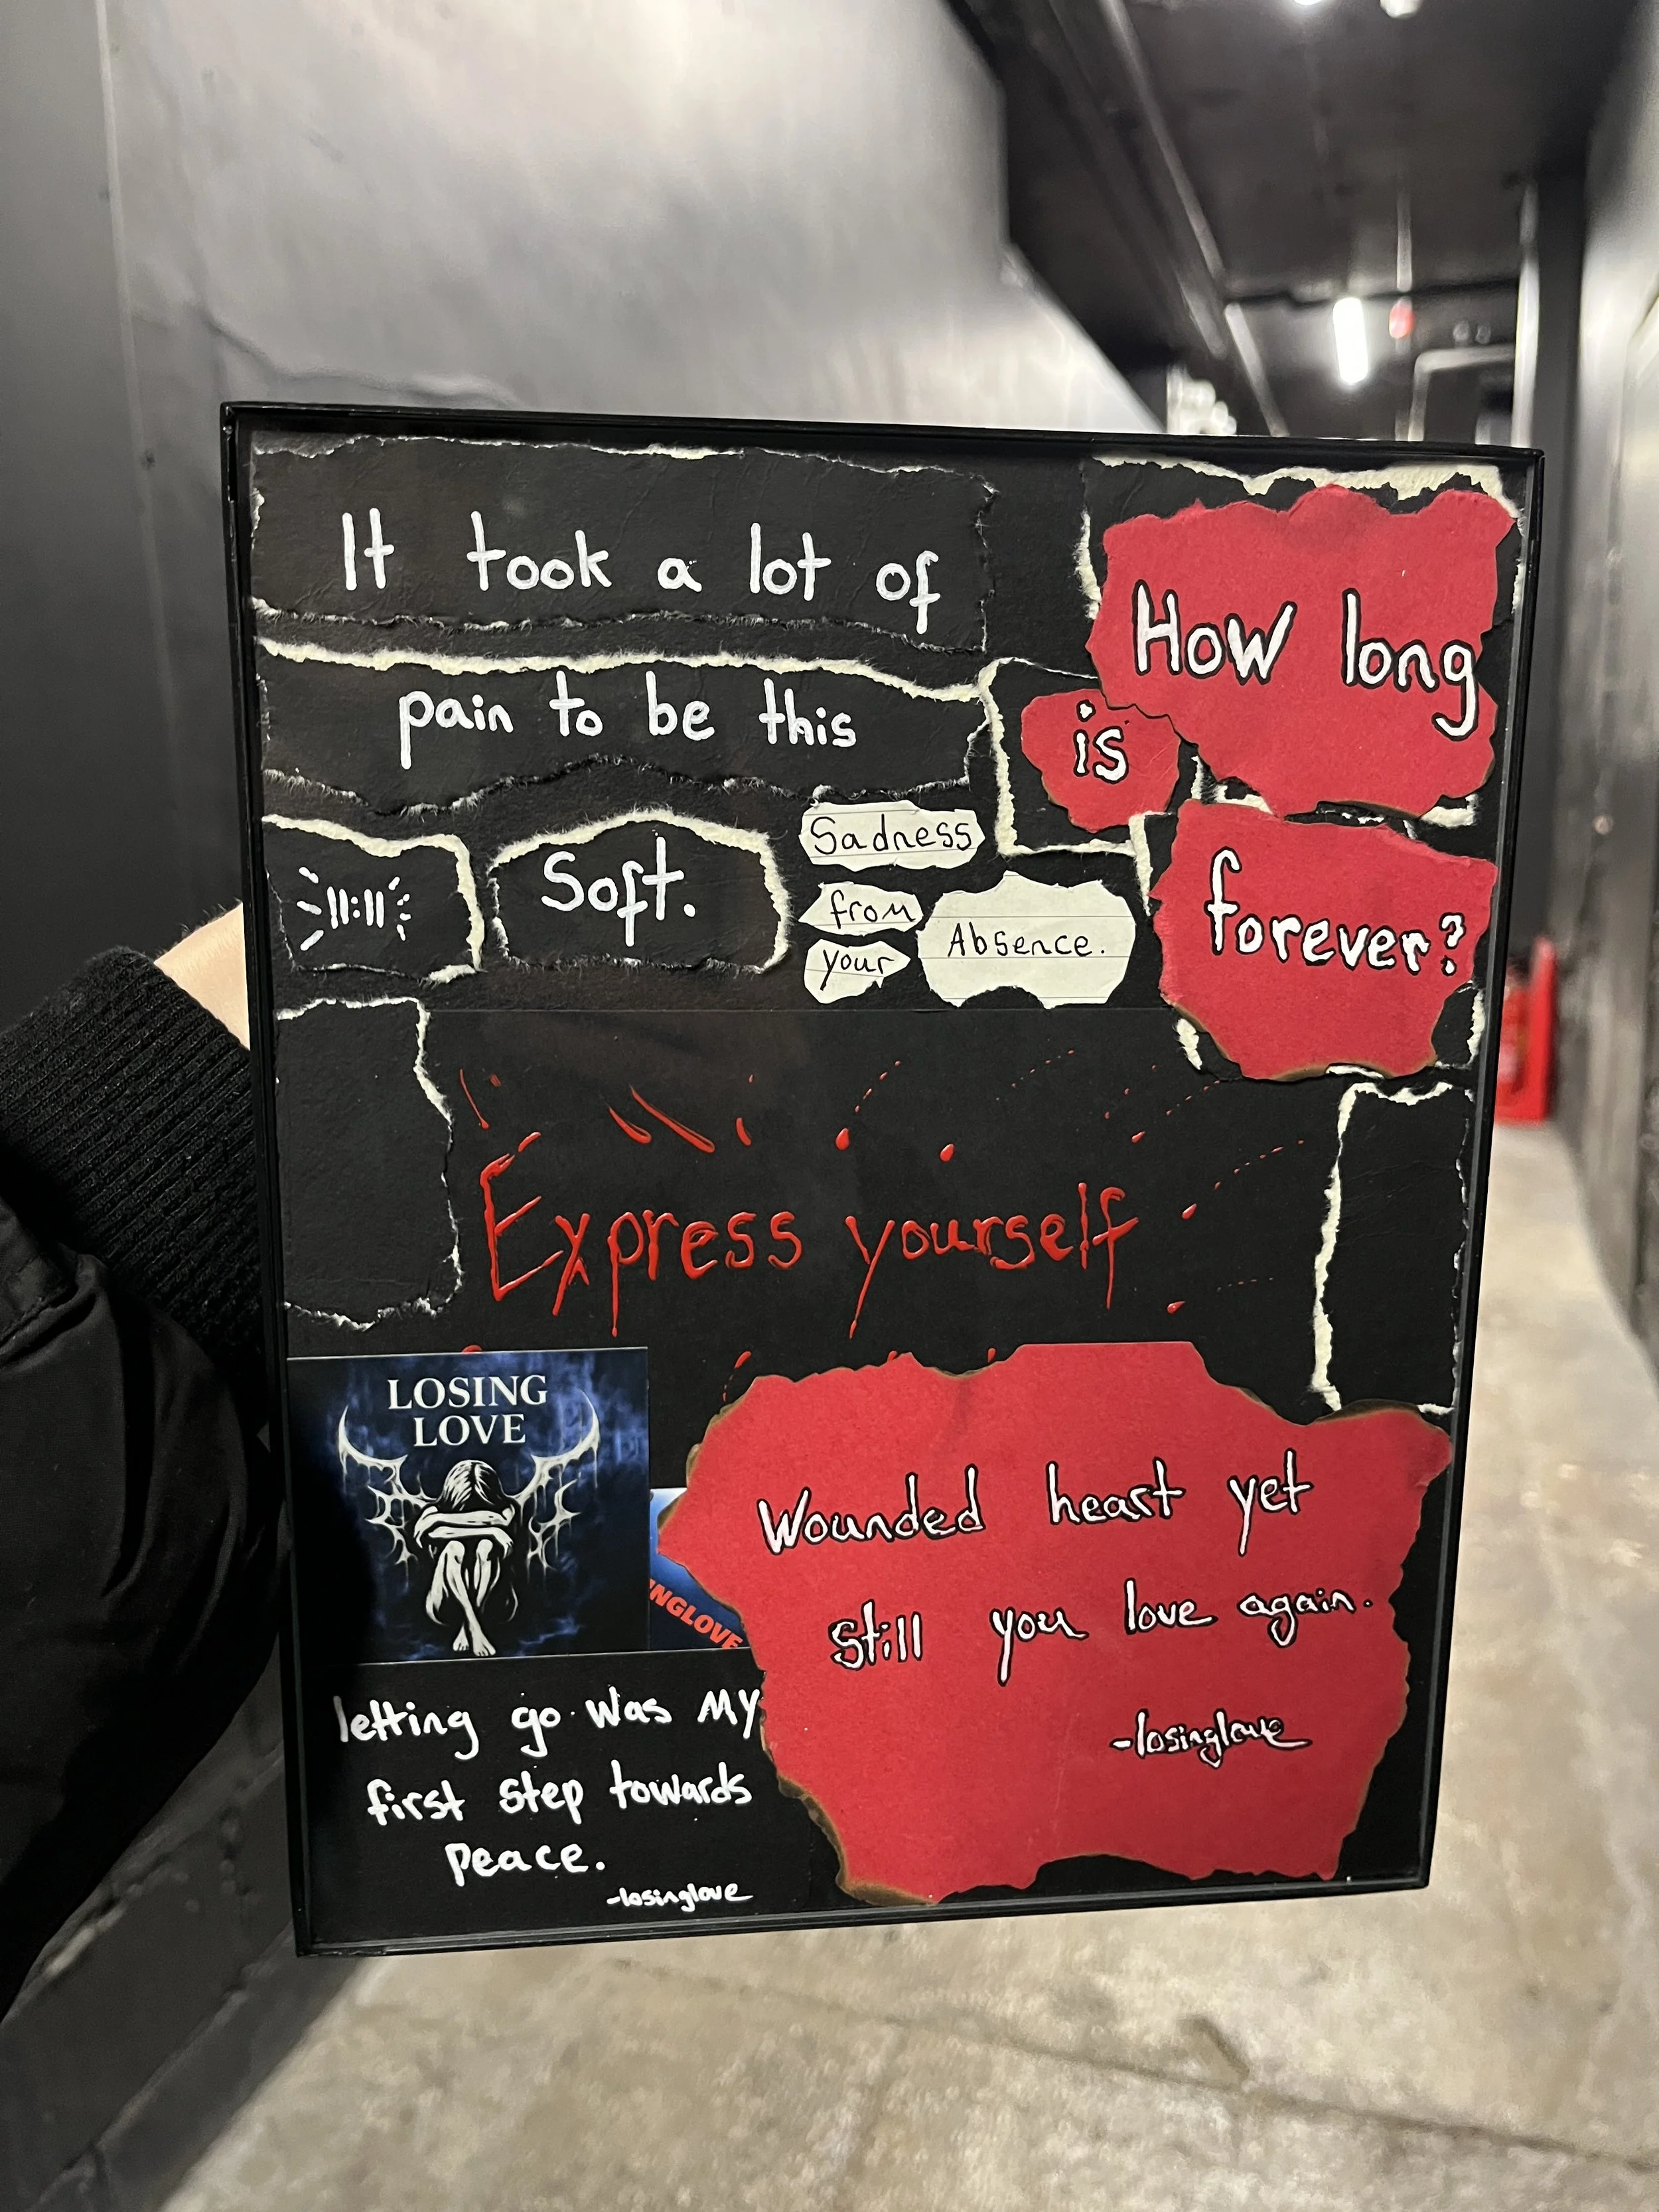 It took a lot of
pain to be this
11:11
Soft.
Sadness
from
your
Absence.
How long
is
forever?
Express yourself
LOSING
LOVE
INGLOVE
Wounded heart yet
still you love again.
-losinglove
letting go was MY
first step towards
peace.
-losinglove